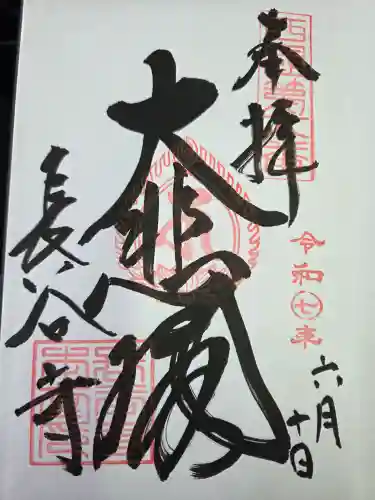 奉拝
令和七年
六月
十日
大悲殿
長谷寺